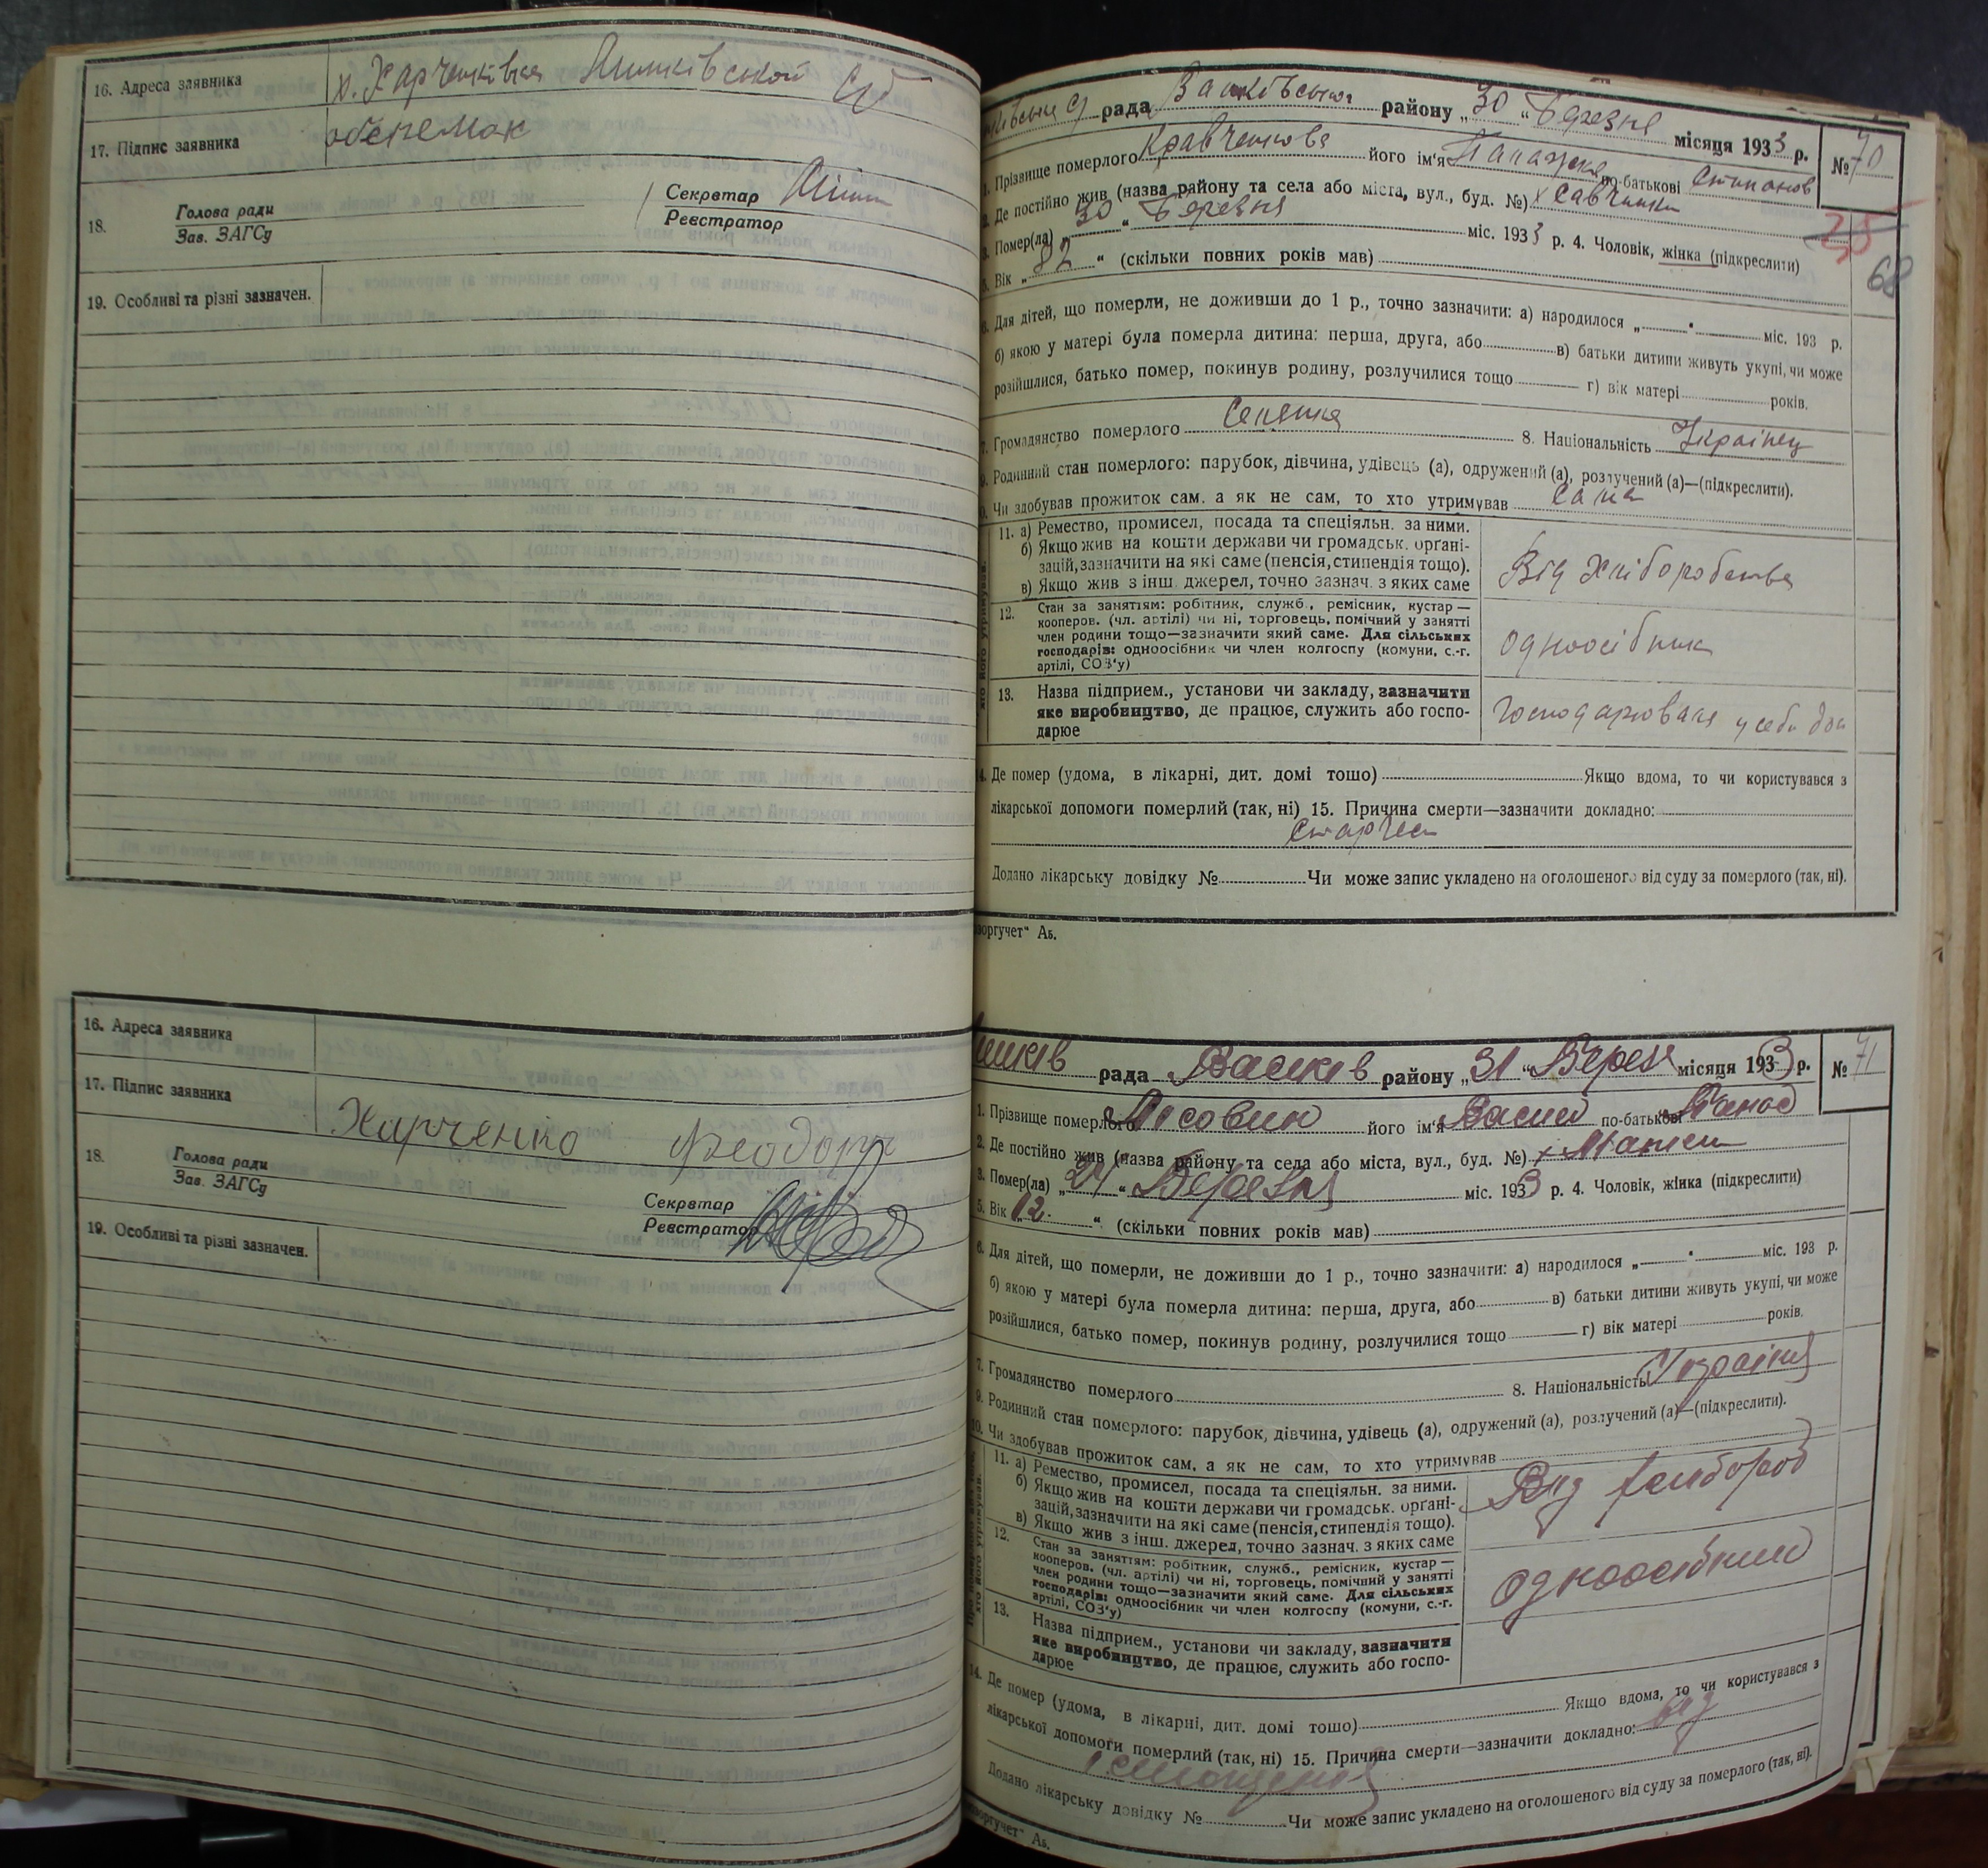 16. Адреса заявника х. Харченківка
17. Підпис заявника
18. Голова ради
Зав. ЗАГСу
Секретар
Реєстратор
19. Особливі та різні зазначен.
16. Адреса заявника
17. Підпис заявника Харченко Феодора
18. Голова ради
Зав. ЗАГСу
Секретар
Реєстратор
19. Особливі та різні зазначен.
рада району „30“ Березня місяця 1933 р. № 70
1. Прізвище померлого Кравченкова його ім'я по-батькові Степанов
25
2. Де постійно жив (назва району та села або міста, вул., буд. №) х Савченки
3. Помер(ла) „30“ Березня міс. 1933 р. 4. Чоловік, жінка (підкреслити)
68
5. Вік „82“ (скільки повних років мав)
6. Для дітей, що померли, не доживши до 1 р., точно зазначити: а) народилося „ “ міс. 193 р.
б) якою у матері була померла дитина: перша, друга, або в) батьки дитини живуть укупі, чи може
розійшлися, батько помер, покинув родину, розлучилися тощо г) вік матері років.
7. Громадянство померлого Селянка 8. Національність Українец
9. Родинний стан померлого: парубок, дівчина, удівець (а), одружений (а), розлучений (а)—(підкреслити).
Чи здобував прожиток сам, а як не сам, то хто утримував сама
11. а) Ремество, промисел, посада та спеціяльн. за ними.
б) Якщо жив на кошти держави чи громадськ. органі-
зацій, зазначити на які саме (пенсія, стипендія тощо).
в) Якщо жив з інш. джерел, точно зазнач. з яких саме
Від Хліборобства
12. Стан за заняттям: робітник, служб., ремісник, кустар —
кооперов. (чл. артілі) чи ні, торговець, помічний у занятті
член родини тощо—зазначити який саме. Для сільських
господарів: одноосібник чи член колгоспу (комуни, с.-г.
артілі, СОЗ'у)
одноосібник
13. Назва підприєм., установи чи закладу, зазначити
яке виробництво, де працює, служить або госпо-
дарює
Господарювала у себе
14. Де помер (удома, в лікарні, дит. домі тошо) Якщо вдома, то чи користувався з
лікарської допомоги померлий (так, ні) 15. Причина смерти—зазначити докладно:
Додано лікарську довідку № Чи може запис укладено на оголошеного від суду за померлого (так, ні).
оргучет“ Аь.
рада Вашків району „31“ Берез місяця 1933 р. № 71
1. Прізвище померлого Лісовик його ім'я Васил по-батькові Панас
2. Де постійно жив (назва району та села або міста, вул., буд. №)
3. Помер(ла) „24“ Березня міс. 1933 р. 4. Чоловік, жінка (підкреслити)
5. Вік „12“ (скільки повних років мав)
6. Для дітей, що померли, не доживши до 1 р., точно зазначити: а) народилося „ “ міс. 193 р.
б) якою у матері була померла дитина: перша, друга, або в) батьки дитини живуть укупі, чи може
розійшлися, батько помер, покинув родину, розлучилися тощо г) вік матері років.
7. Громадянство померлого 8. Національність Україня
9. Родинний стан померлого: парубок, дівчина, удівець (а), одружений (а), розлучений (а)—(підкреслити).
10. Чи здобував прожиток сам, а як не сам, то хто утримував
11. а) Ремество, промисел, посада та спеціяльн. за ними.
б) Якщо жив на кошти держави чи громадськ. органі-
зацій, зазначити на які саме (пенсія, стипендія тощо).
в) Якщо жив з інш. джерел, точно зазнач. з яких саме
Від хлібороб
12. Стан за заняттям: робітник, служб., ремісник, кустар —
кооперов. (чл. артілі) чи ні, торговець, помічний у занятті
член родини тощо—зазначити який саме. Для сільських
господарів: одноосібник чи член колгоспу (комуни, с.-г.
артілі, СОЗ'у)
одноосібник
13. Назва підприєм., установи чи закладу, зазначити
яке виробництво, де працює, служить або госпо-
дарює
14. Де помер (удома, в лікарні, дит. домі тошо) Якщо вдома, то чи користувався з
лікарської допомоги померлий (так, ні) 15. Причина смерти—зазначити докладно: від
істощенія
Додано лікарську довідку № Чи може запис укладено на оголошеного від суду за померлого (так, ні).
оргучет“ Аь.